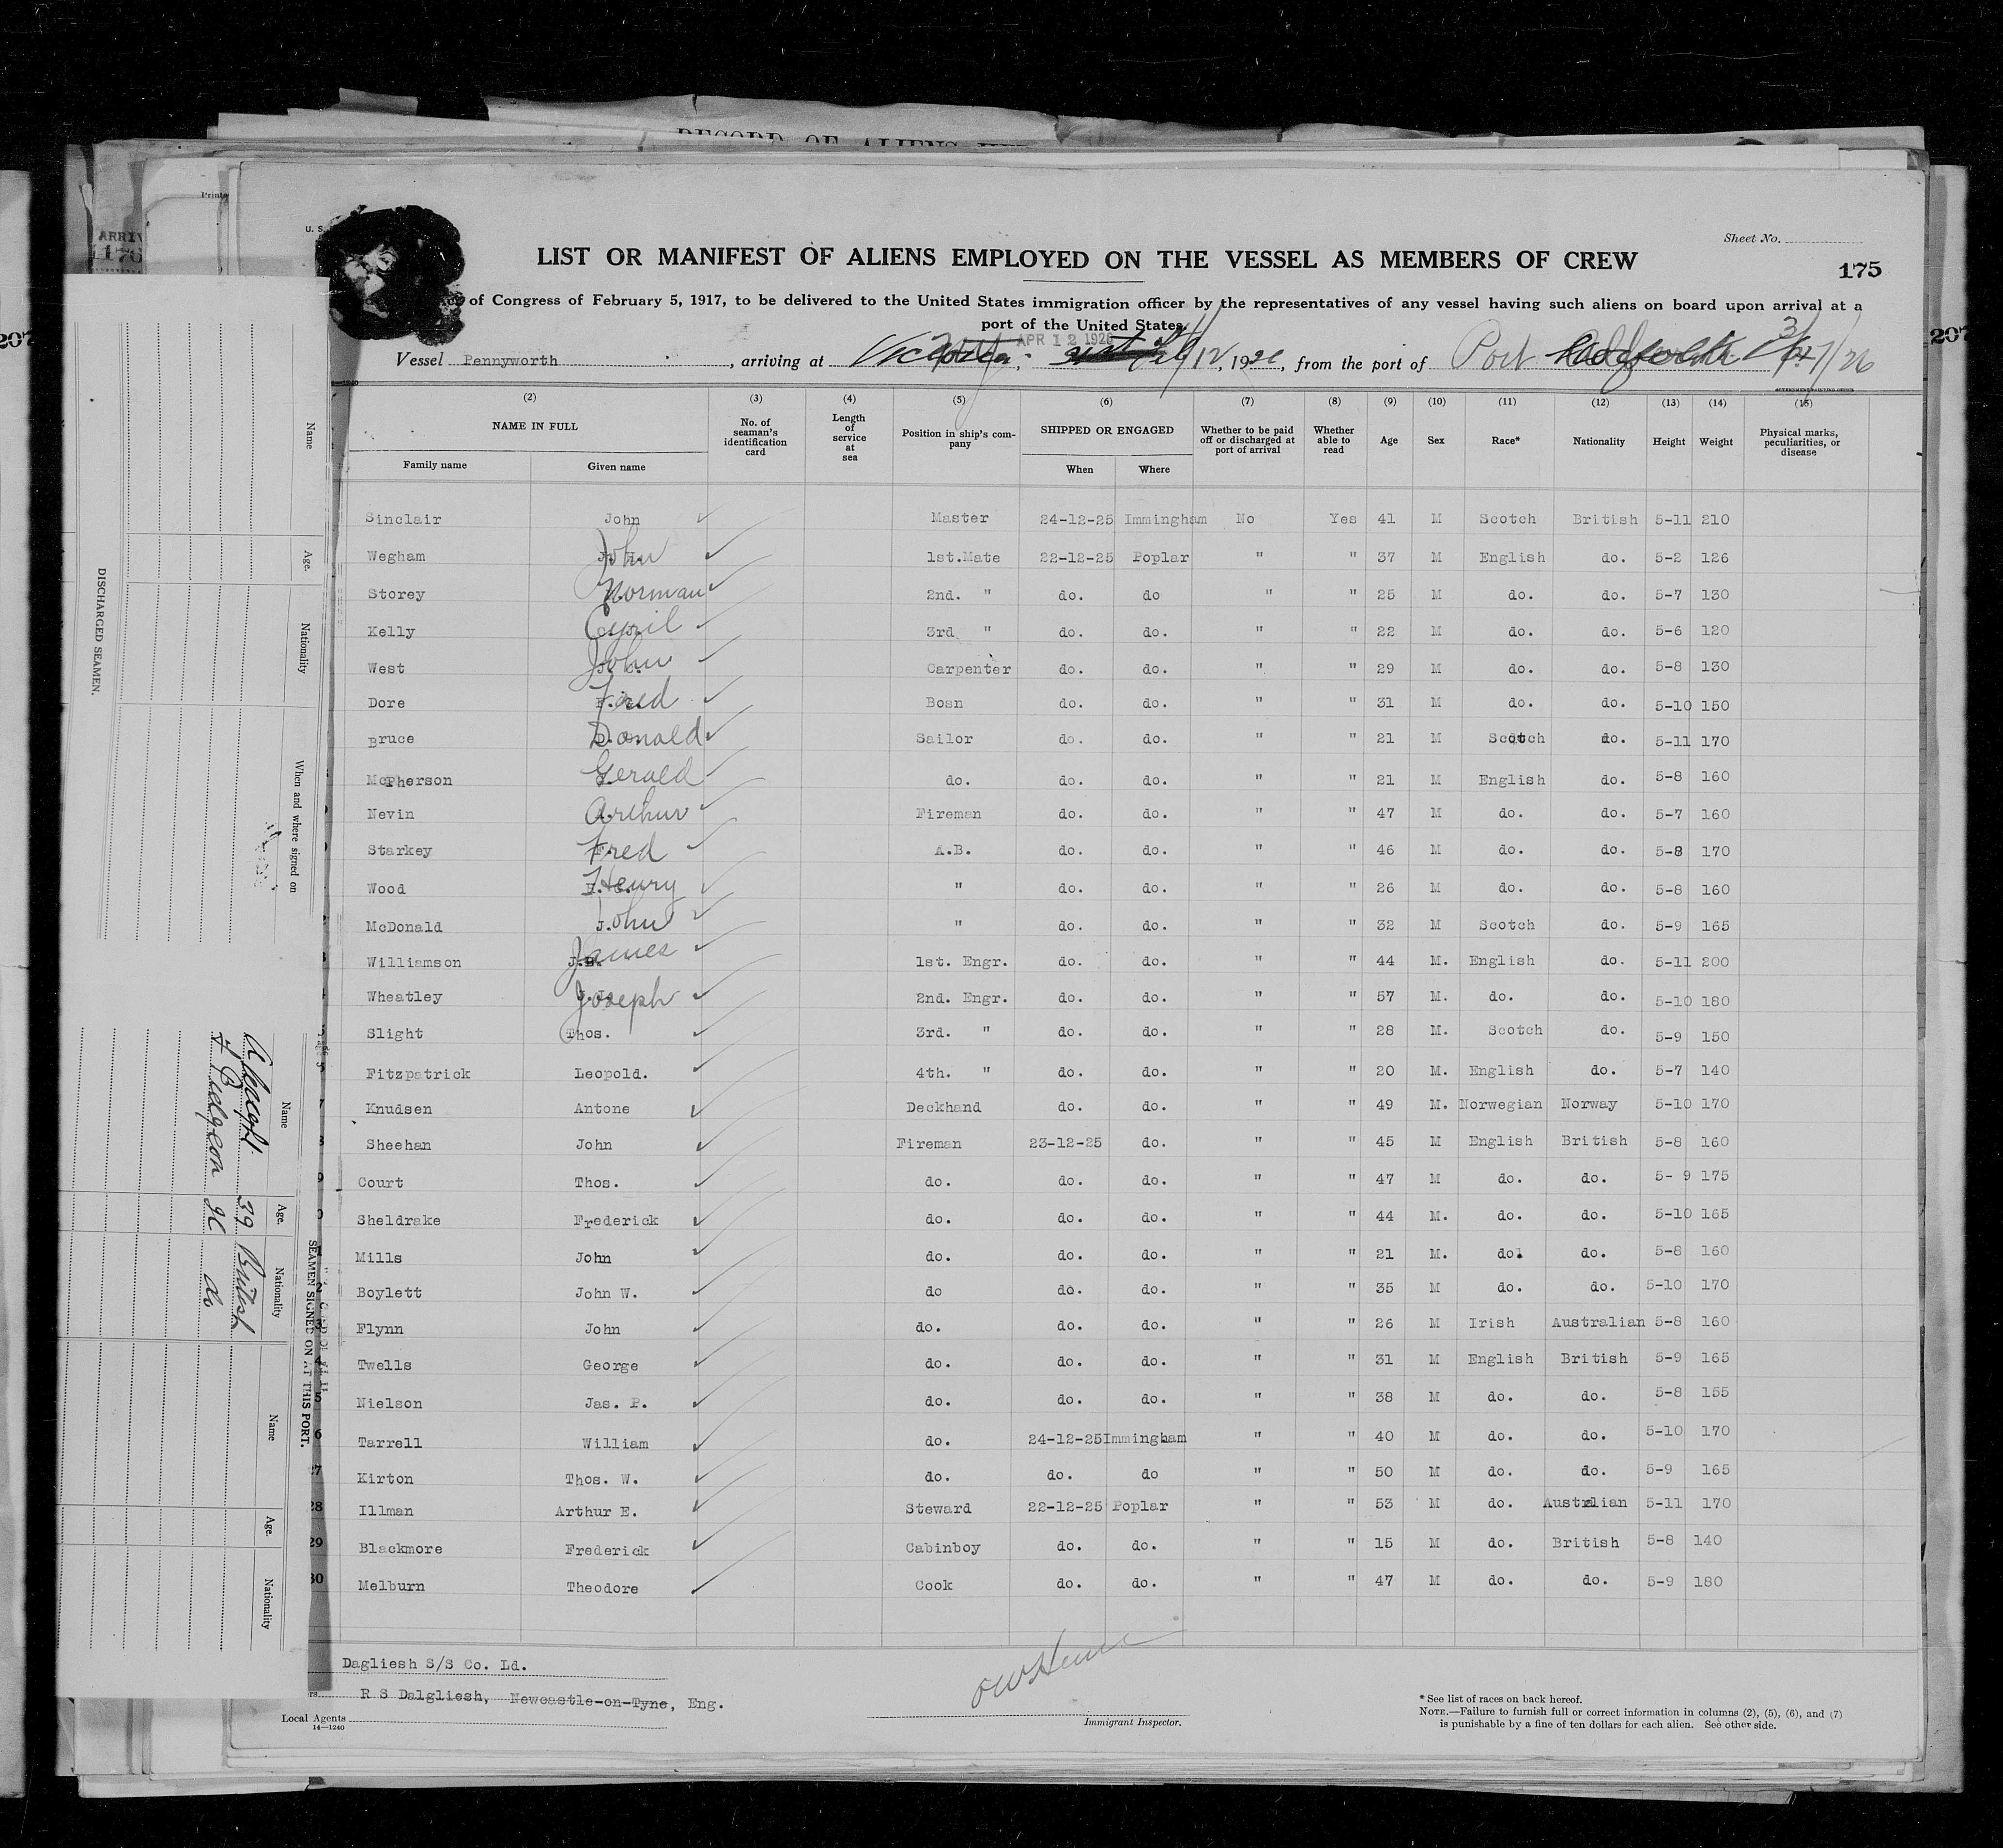 RECORD OF ALIENS
Prints
ARRIV
176
207
207
U. S.
Sheet No.
LIST OR MANIFEST OF ALIENS EMPLOYED ON THE VESSEL AS MEMBERS OF CREW
175
of Congress of February 5, 1917, to be delivered to the United States immigration officer by the representatives of any vessel having such aliens on board upon arrival at a
port of the United States.
APR 12 1926
Vessel Pennyworth, arriving at Victoria, 12, 1926, from the port of Port 3/17/26
(2) (3) (4) (5) (6) (7) (8) (9) (10) (11) (12) (13) (14) (15)
NAME IN FULL No. of seaman's identification card Length of service at sea Position in ship's company SHIPPED OR ENGAGED Whether to be paid off or discharged at port of arrival Whether able to read Age Sex Race* Nationality Height Weight Physical marks, peculiarities, or disease
Family name Given name When Where
Sinclair John Master 24-12-25 Immingham No Yes 41 M Scotch British 5-11 210
Wegham John 1st.Mate 22-12-25 Poplar " " 37 M English do. 5-2 126
Storey Norman 2nd. " do. do " " 25 M do. do. 5-7 130
Kelly Cyril 3rd " do. do. " " 22 M do. do. 5-6 120
West John Carpenter do. do. " " 29 M do. do. 5-8 130
Dore Fred Bosn do. do. " " 31 M do. do. 5-10 150
Bruce Donald Sailor do. do. " " 21 M Scotch do. 5-11 170
McPherson Gerald do. do. do. " " 21 M English do. 5-8 160
Nevin Arthur Fireman do. do. " " 47 M do. do. 5-7 160
Starkey Fred A.B. do. do. " " 46 M do. do. 5-8 170
Wood Henry " do. do. " " 26 M do. do. 5-8 160
McDonald John " do. do. " " 32 M Scotch do. 5-9 165
Williamson James 1st. Engr. do. do. " " 44 M. English do. 5-11 200
Wheatley Joseph 2nd. Engr. do. do. " " 57 M. do. do. 5-10 180
Slight Thos. 3rd. " do. do. " " 28 M. Scotch do. 5-9 150
Fitzpatrick Leopold. 4th. " do. do. " " 20 M. English do. 5-7 140
Knudsen Antone Deckhand do. do. " " 49 M. Norwegian Norway 5-10 170
Sheehan John Fireman 23-12-25 do. " " 45 M English British 5-8 160
Court Thos. do. do. do. " " 47 M do. do. 5- 9 175
Sheldrake Frederick do. do. do. " " 44 M. do. do. 5-10 165
Mills John do. do. do. " " 21 M. do. do. 5-8 160
Boylett John W. do do. do. " " 35 M do. do. 5-10 170
Flynn John do. do. do. " " 26 M Irish Australian 5-8 160
Twells George do. do. do. " " 31 M English British 5-9 165
Nielson Jas. P. do. do. do. " " 38 M do. do. 5-8 155
Tarrell William do. 24-12-25 Immingham " " 40 M do. do. 5-10 170
27 Kirton Thos. W. do. do. do " " 50 M do. do. 5-9 165
28 Illman Arthur E. Steward 22-12-25 Poplar " " 53 M do. Australian 5-11 170
29 Blackmore Frederick Cabinboy do. do. " " 15 M do. British 5-8 140
30 Melburn Theodore Cook do. do. " " 47 M do. do. 5-9 180
Dagliesh S/S Co. Ld.
R S Dalgliesh, Newcastle-on-Tyne, Eng.
Local Agents
14—1240
Immigrant Inspector.
* See list of races on back hereof.
NOTE.—Failure to furnish full or correct information in columns (2), (5), (6), and (7)
is punishable by a fine of ten dollars for each alien. See other side.
DISCHARGED SEAMEN.
Name Age. Nationality When and where signed on
SEAMEN SIGNED ON AT THIS PORT.
Name Age. Nationality
39 British
do
Name Age. Nationality